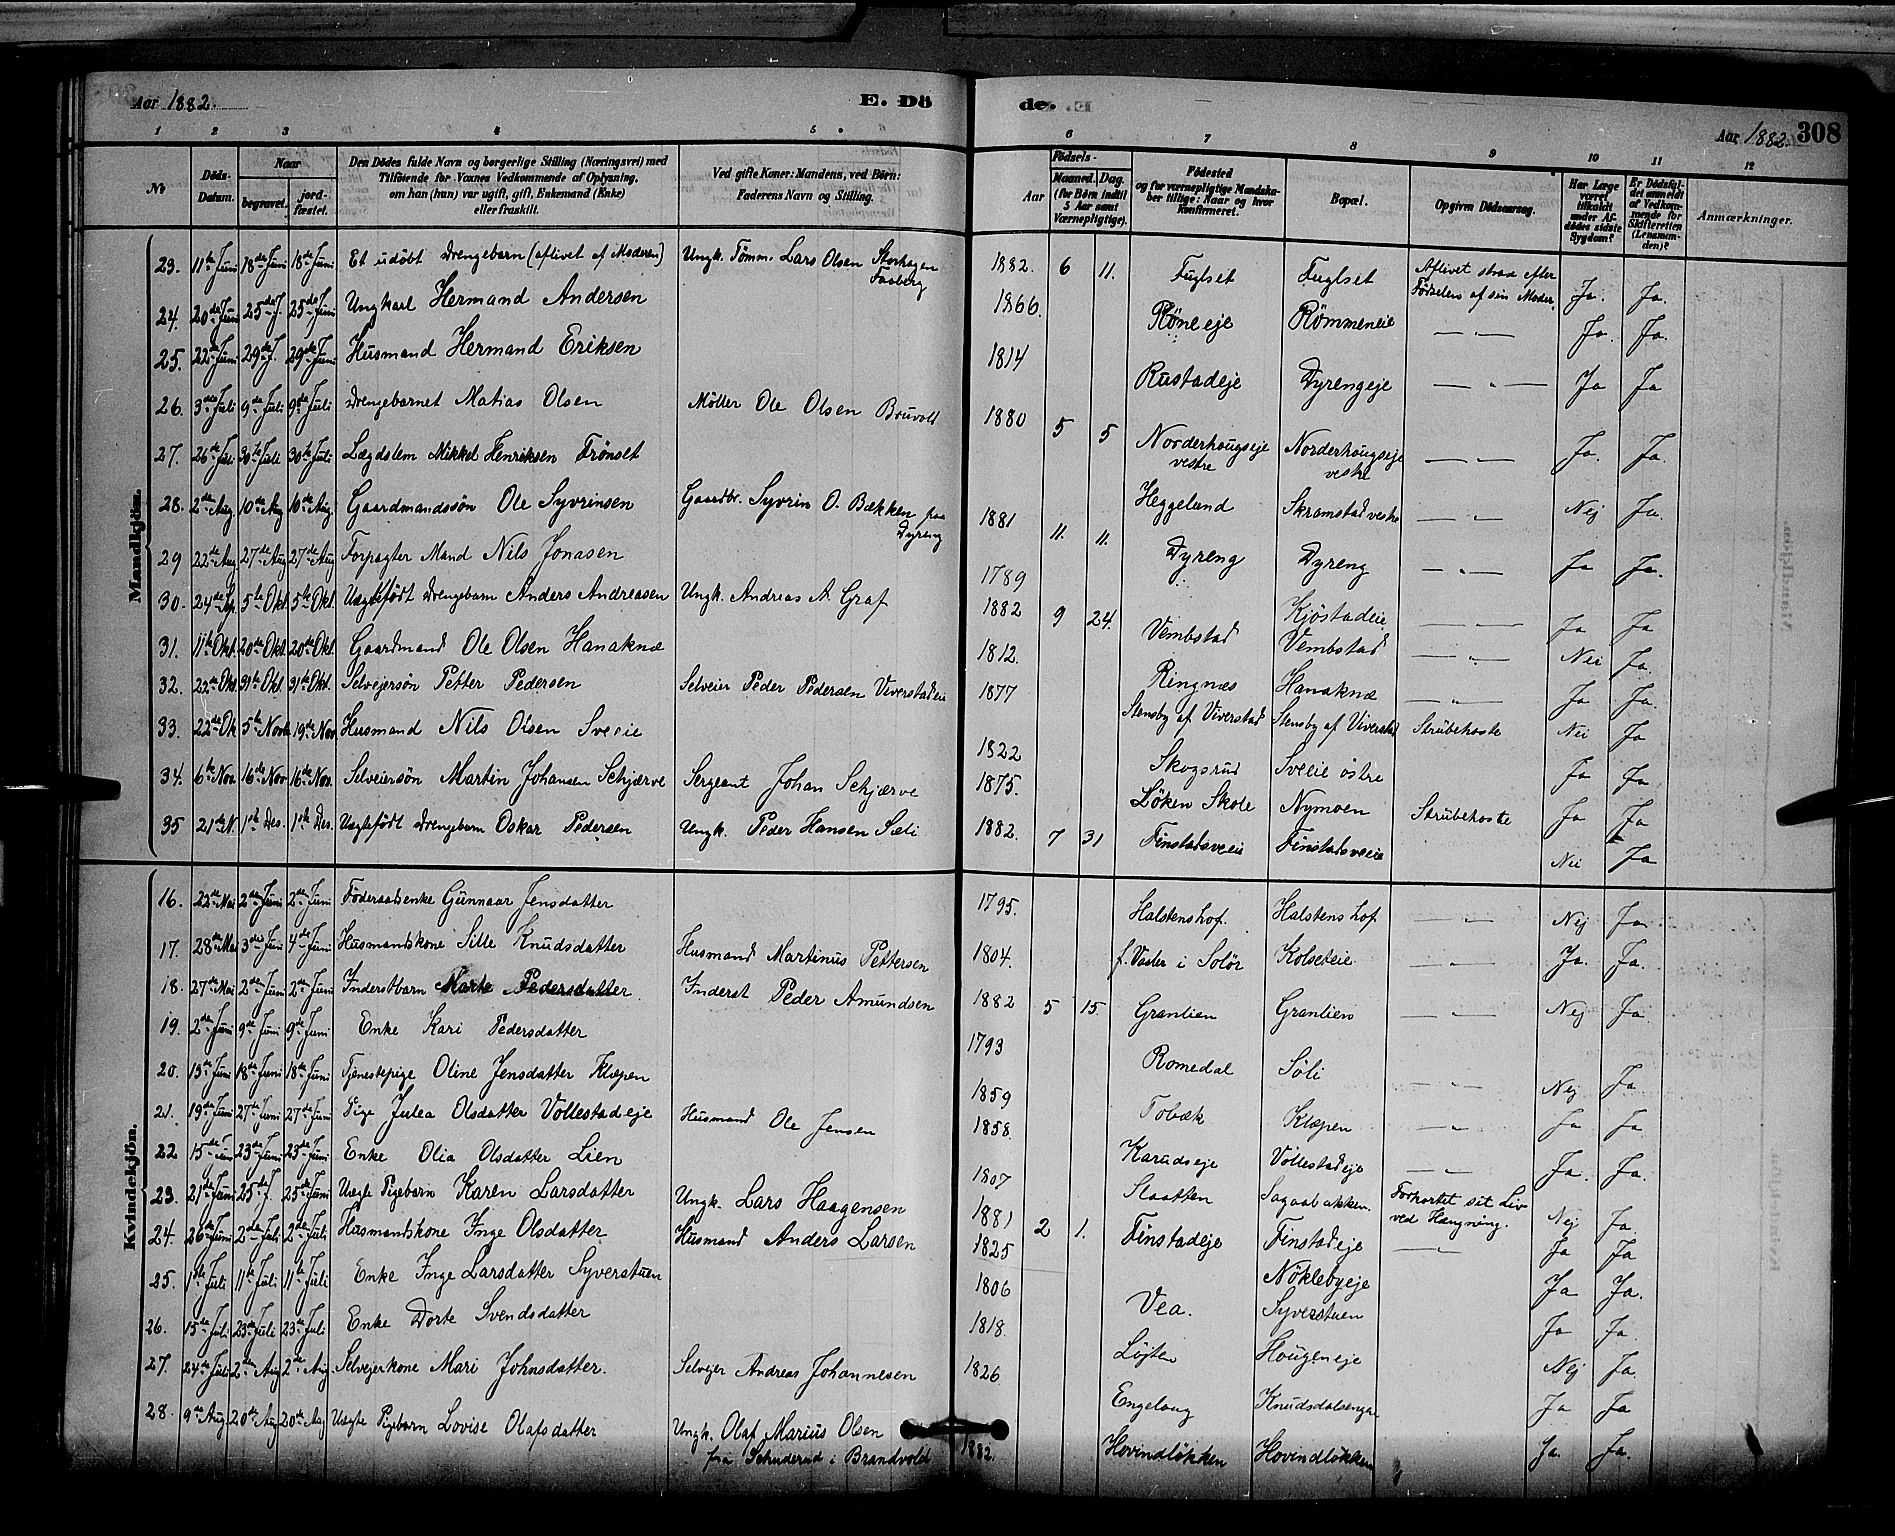 Aar 1882. E. Dö
de. Aar 1882. 308
1 2 3 4 5 6 7 8 9 10 11 12
No
Döds-Datum.
Naar
begravet.
jord-fæstet.
Den Dödes fulde Navn og borgerlige Stilling (Næringsvei) med
Tilföiende for Voxnes Vedkommende af Oplysning,
om han (hun) var ugift, gift, Enkemand (Enke)
eller fraskilt.
Ved gifte Koner: Mandens, ved Börn:
Faderens Navn og Stilling.
Aar
Födsels-
Maaned. Dag.
(for Börn indtil 5 Aar samt Værnepligtige).
Födested
og for værnepligtige Mandska-
ber tillige: Naar og hvor
konfirmeret.
Bopæl.
Opgiven Dödsaarsag.
Har Læge været tilkaldt under Af-dödes sidste Sygdom?
Er Dödsfal-det anmeldt af Vedkom-mende for Skifteretten (Lensman-den)?
Anmærkninger.
Mandkjön.
23. 11te Juni 18de Juni 18de Juni Et udöbt Drengebarn (aflivet af Moderen) Ungk. Tömm. Lars Olsen Storhagen Faaberg 1882. 6 11. Fuglset Fuglset Aflivet strax efter Födselen af sin Moder Ja. Ja.
24. 20de Juni 25de J. 25de Juni Ungkarl Hermand Andersen 1866. Röneeje Römmeneie — „ — Ja. Ja.
25. 22de Juni 29de J. 29de Juni Husmand Hermand Eriksen 1814 Rustadeje Dyrengeje — „ — Ja Ja
26. 3die Juli 9de Juli 9de Juli Drengebarnet Matias Olsen Möller Ole Olsen Bruvold 1880 5 5 Norderhougseje vestre Norderhougseje vestre — „ — Ja. Ja.
27. 26de Juli 30te Juli 30te Juli Lægdslem Mikkel Henriksen Frönset Heggelund Skramstad vestre — „ — Nej Ja.
28. 2den Aug 10de Aug 10de Aug. Gaardmandssön Ole Syvrinsen Gaardbr. Syvrin O. Bækken paa Dyreng 1881 11. 11. Dyreng Dyreng — „ — Ja Ja.
29 22de Aug. 27de Aug 27de Aug Forpagter Mand Nils Jonasen 1789 Kjöstadeie — „ — Ja Ja
30. 24de Sep. 5te Okt. 5te Okt. Uægtefödt Drengebarn Anders Andreasen Ungk. Andreas A. Graf 1882 9 24. Vembstad Vembstad — „ — Nei Ja.
31. 11te Okt. 20de Okt. 20de Okt. Gaardmand Ole Olsen Hanaknæ 1812. Ringnæs Hanaknæ — „ — Ja Ja.
32. 22de Okt. 31te Okt. 31te Okt. Selvejersön Petter Pedersen Selveier Peder Pedersen Viverstadeie 1877 Stensby af Viverstad Stensby af Viverstad Strubehoste Nei Ja
33. 22de Ok 5te Novb 19de Nov Husmand Nils Olsen Sveeie 1822 Skogsrud Sveeie östre Ja Ja
34. 6te Nov. 16de Nov 16de Nov. Selveiersön Martin Johansen Schjærve Sergeant Johan Schjærve 1875. Löken Skole Nymoen Strubehoste Ja Ja
35 21de N. 1ste Des. 1ste Des. Uægtefödt Drengebarn Oskar Pedersen Ungk. Peder Hansen Sæli 1882. 7 31 Finstadsveeie Finstadsveeie Nei Ja
Kvindekjön.
16. 22de Mai 2den Juni 2den Juni Föderaadsenke Gunnaar Jensdatter 1795. Halstenshof. Halstenshof — „ — Nej Ja.
17. 28de Mai 3die Juni 4de Juni Husmandskone Sille Knudsdatter Husmand Martinus Pettersen 1804. f. Vaaler i Solör Kolseteie — „ — Ja. Ja.
18. 27de Mai 2den Juni 2den Juni Inderstbarn Marte Pedersdatter. Inderst Peder Amundsen 1882 5 15. Granlien Granlien — „ — Nej Ja
19. 2den Juni 9de Juni 9de Juni Enke Kari Pedersdatter 1793 Romedal Söli — „ — Nej Ja
20. 13de Juni 18de Juni 18de Juni Tjenestepige Oline Jensdatter Klæpen 1859 Tobæk Klæpen — „ — Ja Ja
21. 19de Juni 27de Juni 27de Juni Pige Julea Olsdatter Vollestadeje Husmand Ole Jensen 1858. Karudseje Vollestadeje — „ — Ja. Ja.
22 15de Juni 23de Juni 23de Juni Enke Olia Olsdatter Lien 1807 Slaatten Sagaabakken. Forkortet sit Liv ved Hængning. Nej Ja
23. 21de Juni 25de J. 25de Juni Uægte Pigebarn Karen Larsdatter Ungk. Lars Haagensen 1881 2 1. Finstadeje Finstadeje — „ — Ja Ja
24. 26de Juni 2den Juli 2den Juli Husmandskone Inge Olsdatter Husmand Anders Larsen 1825 Nöklebyeje Ja Ja.
25. 1ste Juli 11te Juli 11te Juli Enke Inge Larsdatter Syverstuen 1806 Vea. Syverstuen Ja Ja.
26. 15de Juli 23de Juli 23de Juli Enke Dorte Svendsdatter 1818. Löjten Hougeneje Nej Ja.
27. 24de Juli 2den Aug 2den Aug Selvejerkone Mari Johnsdatter. Selvejer Andreas Johannesen 1826 Engelaug Knudsdalsengen Ja Ja
28. 9de Aug. 20de Aug 20de Aug Uægte Pigebarn Lovise Olafsdatter Ungk. Olaf Marius Olsen fra Schuderud i Brandvold 1882. Hovindlökken Hovindlökken Ja. Ja.